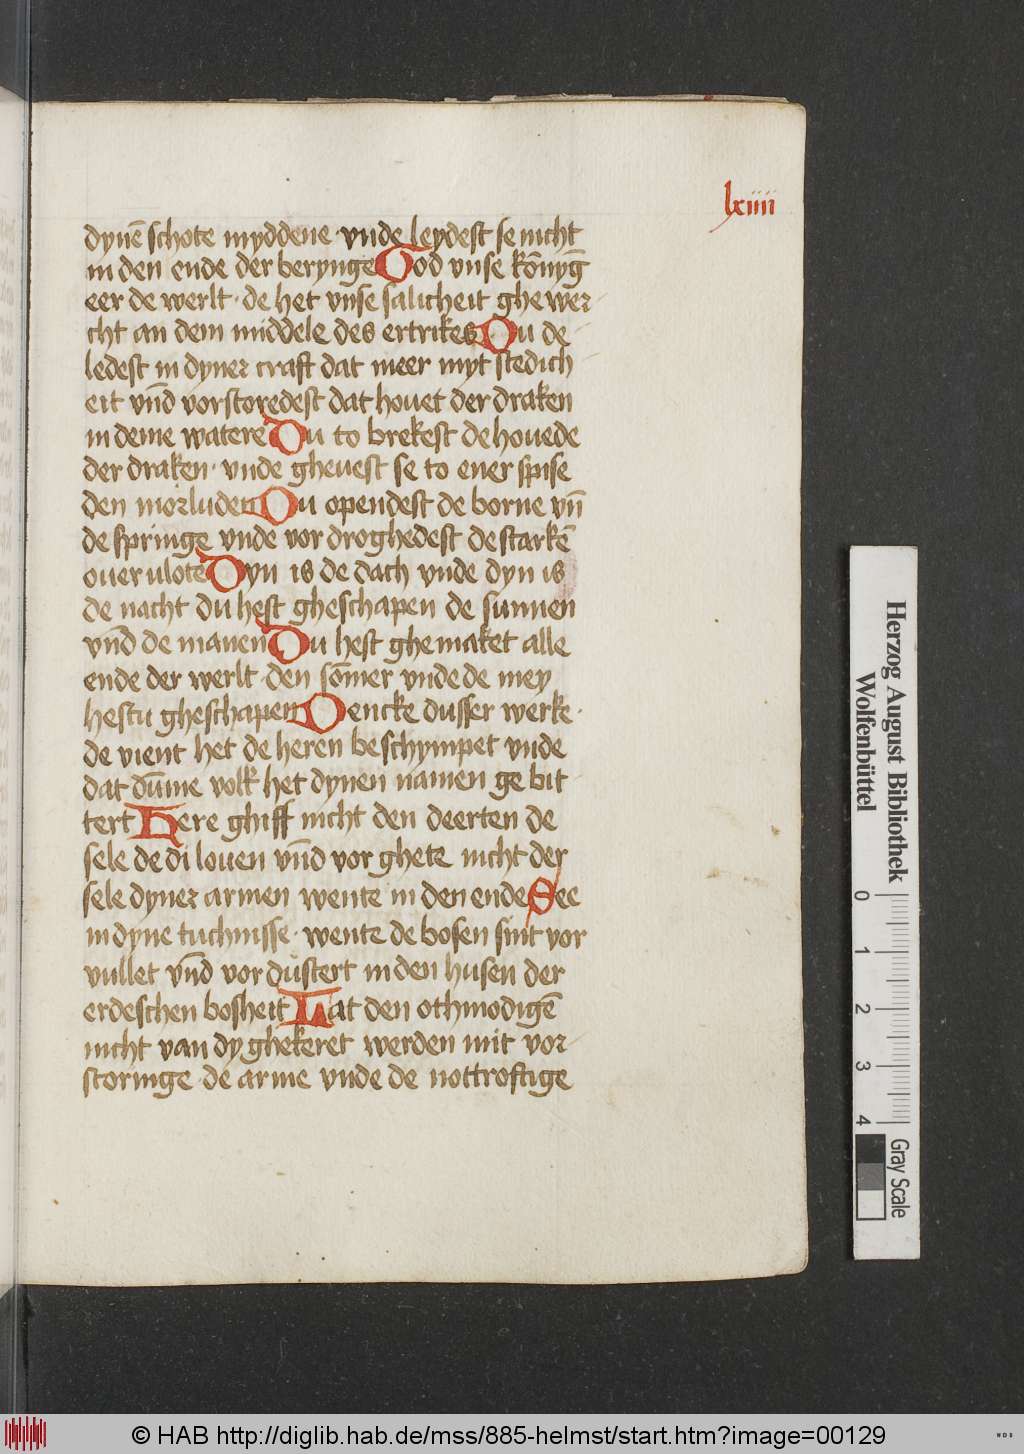 lxiiii
dynē schote myddene vnde leydest se nicht
in den ende der berynge God vnse kōnyḡ
eer de werlt · de het vnse salicheit ghe wer-
cht an dem middele des ertrikes Du de-
ledest in dyner craft dat meer myt stedich
eit vn̄d vorstoredest dat houet der draken
in deme watere Du to brekest de houede
der draken · vnde gheuest se to ener spise
den morluden Du opendest de borne vn̄
de springe vnde vor droghedest de starkē
ouer vlote Dyn is de dach vnde dyn is
de nacht du hest gheschapen de sunnen
vn̄d de manen Du hest ghe maket alle
ende der werlt · den sōmer vnde de mey
hestu gheschapen Dencke dusser werke ·
de vient het de heren be schympet vnde
dat dūme volk het dynen namen ge bit-
tert Here ghiff nicht den deerten de
sele de di louen vn̄d vor ghete nicht der
sele dyner armen wente in den ende See
in dyne tuchnisse · wente de bosen sint vor
vullet vn̄d vor dústert in den husen der
erdeschen bosheit Lat den othmodigē
nicht van dy ghekeret werden mit vor-
storinge · de arme vnde de nottroftige
Herzog August Bibliothek
Wolfenbüttel
0 1 2 3 4
Gray Scale
© HAB http://diglib.hab.de/mss/885-helmst/start.htm?image=00129